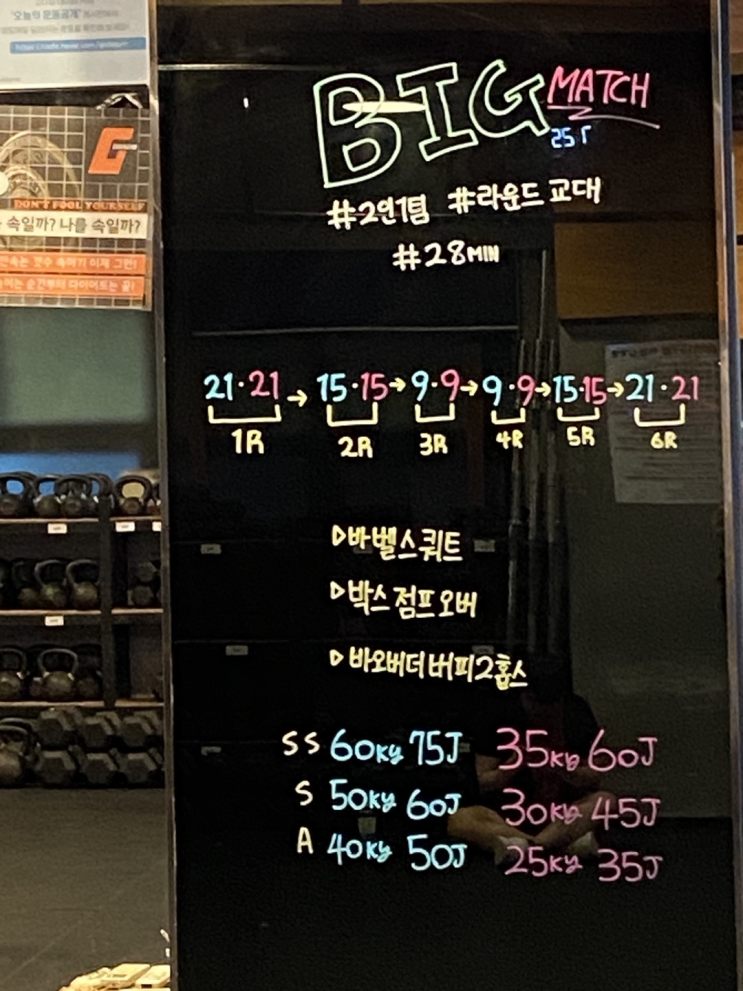 "오늘의 운동공개"
DON'T FOOL YOURSELF
속일까? 나를 속일까?
BIG MATCH
25
#2인1팀 #라운드 교대
#28MIN
21·21→15·15→9·9→9·9→15·15→21·21
1R 2R 3R 4R 5R 6R
▷바벨스쿼트
▷박스점프오버
▷바오버더버피2홉스
SS 60kg 75J 35kg 60J
S 50kg 60J 30kg 45J
A 40kg 50J 25kg 35J